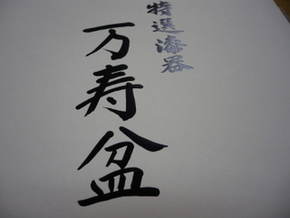 特選漆器
万寿盆